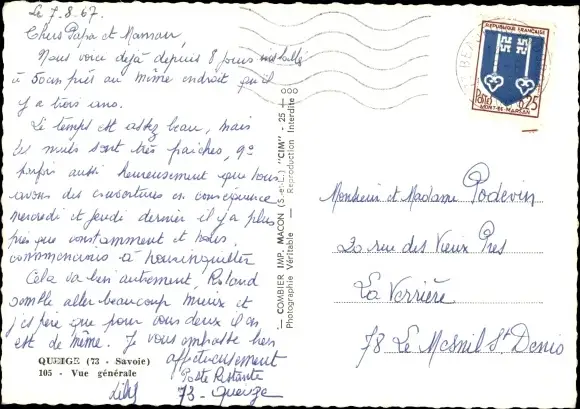 Le 7.8.67.
Chers Papa et Maman,
Nous voici déjà depuis 8 jours installés
à 50 m près au même endroit qu'il
y a trois ans.
Le temps est assez beau, mais
les nuits sont très fraîches, 9°
parfois aussi heureusement que nous
avons des couvertures en conséquence
mercredi et jeudi dernier il y a plu
presque constamment et nous
commencions à nous inquiéter
Cela va bien autrement, Roland
semble aller beaucoup mieux et
j'espère que pour vous deux il en
est de même. Je vous embrasse bien
affectueusement
QUEIGE (73 - Savoie)
105 - Vue générale
Poste Restante
73 - Queige
COMBIER IMP. MACON (S.-et-L.) "CIM" - 25 +
Photographie Véritable — Reproduction Interdite
REPUBLIQUE FRANÇAISE
POSTES
0,25
MONT-DE-MARSAN
Monsieur et Madame Podevin
20 rue des Vieux Prés
La Verrière
78 Le Mesnil St Denis